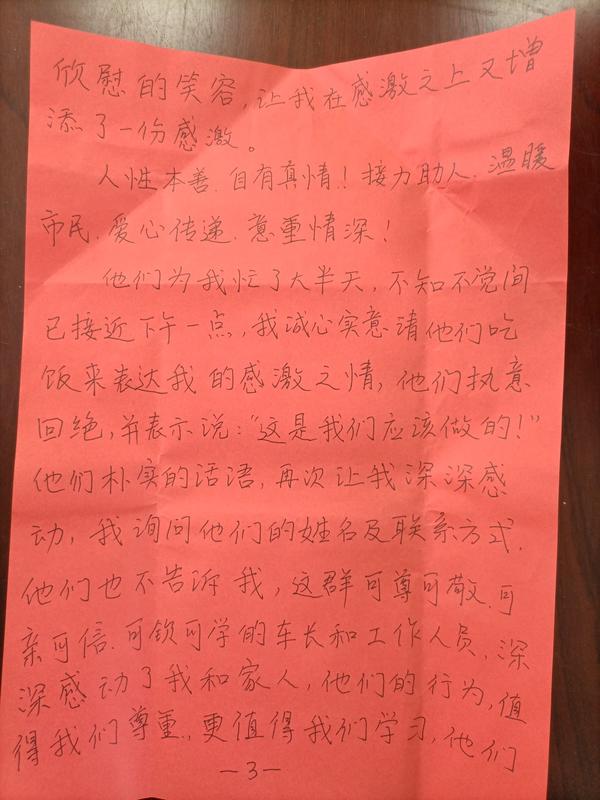 欣慰的笑容，让我在感激之上又增
添了一份感激。
人性本善、自有真情！接力助人、温暖
市民、爱心传递、意重情深！
他们为我忙了大半天，不知不觉间
已接近下午一点，我诚心实意请他们吃
饭来表达我的感激之情，他们执意
回绝，并表示说：“这是我们应该做的！”
他们朴实的话语，再次让我深深感
动，我询问他们的姓名及联系方式，
他们也不告诉我，这群可尊可敬、可
亲可信、可钦可学的车长和工作人员，深
深感动了我和家人，他们的行为，值
得我们尊重，更值得我们学习，他们
—3—